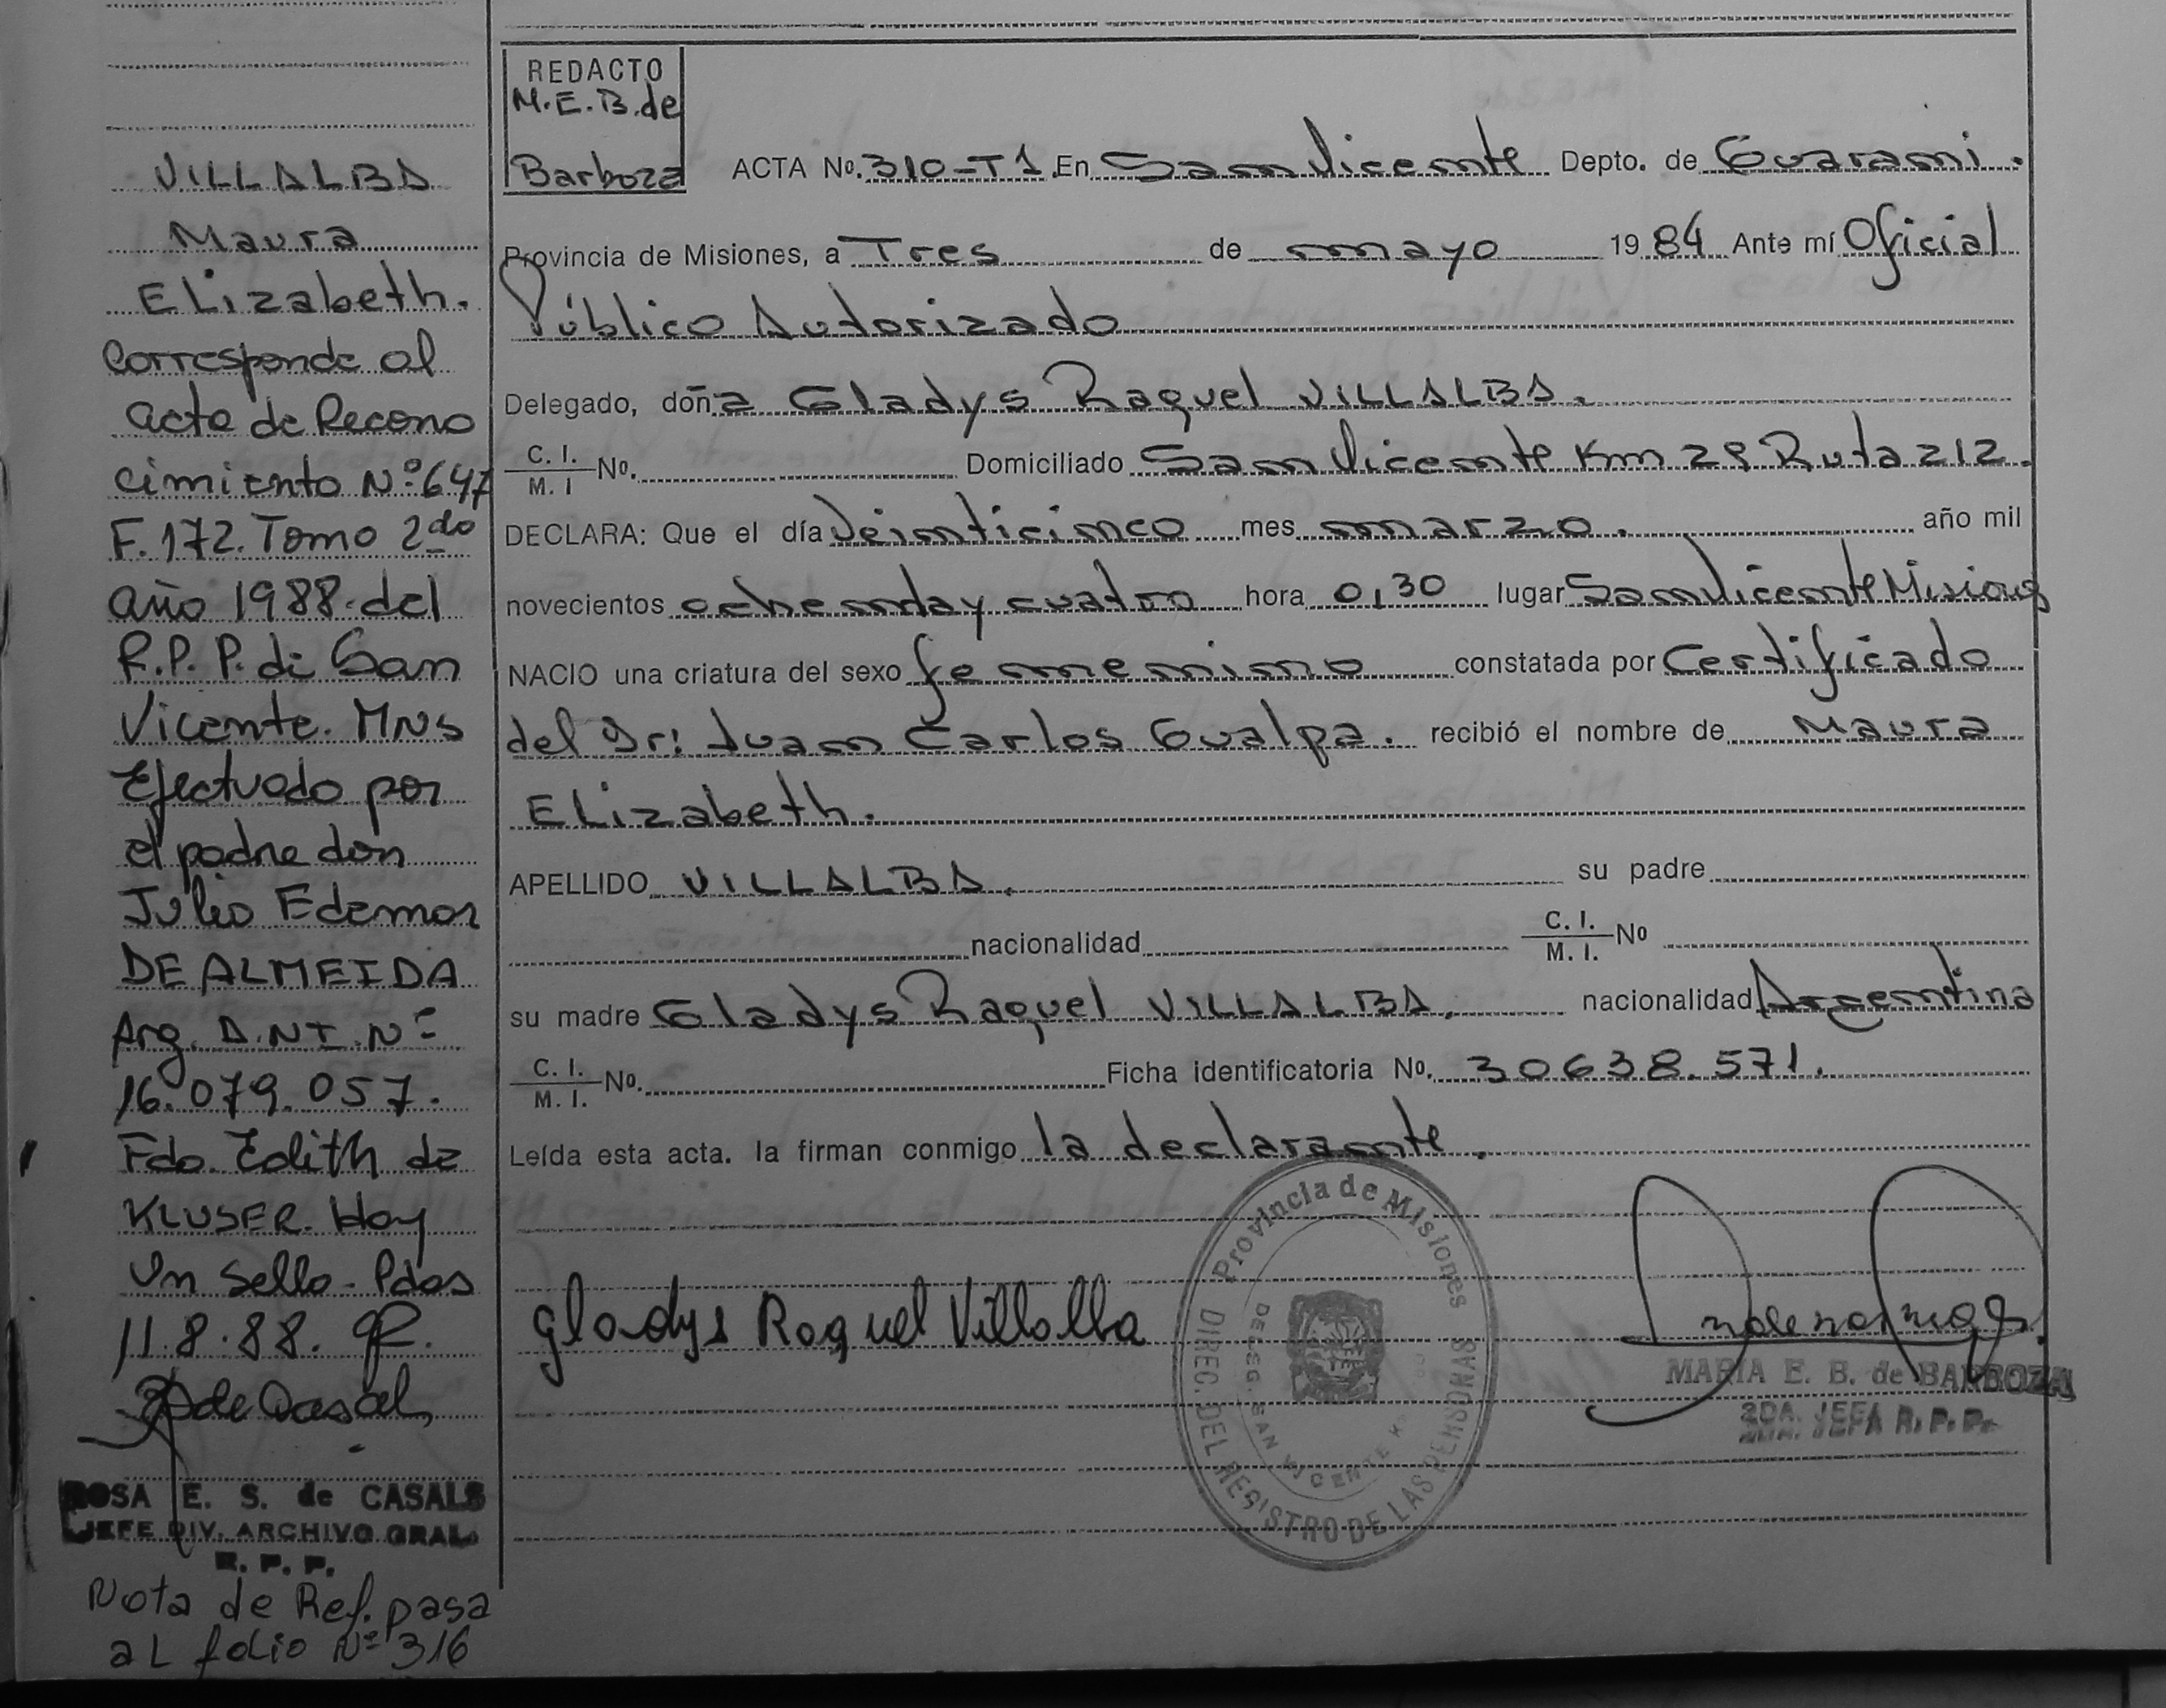 VILLALBA
Maura
ELizabeth.
Corresponde al
acta de Recono
cimiento Nº 647
F. 172. Tomo 2do
año 1988. del
R.P.P. de San
Vicente. MNS
Efectuado por
el padre don
Julio Edemar
DE ALMEIDA
Arg. D.NI. Nº
16.079.057.
Fdo. Edith de
KLUSER. Hay
Un Sello - Pdas
11.8.88.
ROSA E. S. de CASALS
JEFE DIV. ARCHIVO GRAL.
R. P. P.
Nota de Ref. pasa
aL folio Nº 316
REDACTO
M.E.B. de
Barboza
ACTA Nº. 310-T1. En San Vicente Depto. de Guarani.
Provincia de Misiones, a Tres de mayo 1984 Ante mí Oficial
Público Autorizado
Delegado, doña Gladys Raquel VILLALBA.
C. I. / M. I Nº. Domiciliado San Vicente Km 28 Ruta 212.
DECLARA: Que el día Veinticinco mes marzo. año mil
novecientos ochenta y cuatro hora 0,30 lugar San Vicente Misiones
NACIO una criatura del sexo femenino constatada por Certificado
del Dr: Juan Carlos Gualpa. recibió el nombre de Maura
ELizabeth.
APELLIDO VILLALBA. su padre
nacionalidad C. I. / M. I. Nº
su madre Gladys Raquel VILLALBA. nacionalidad Argentina
C. I. / M. I. Nº. Ficha identificatoria Nº. 30638.571.
Leída esta acta. la firman conmigo la declarante.
Gladys Raquel Villalba
Provincia de Misiones
DIREC. DEL REGISTRO DE LAS PERSONAS
DELEG. SAN VICENTE
MARIA E. B. de BARBOZA
2DA. JEFA R. P. P.